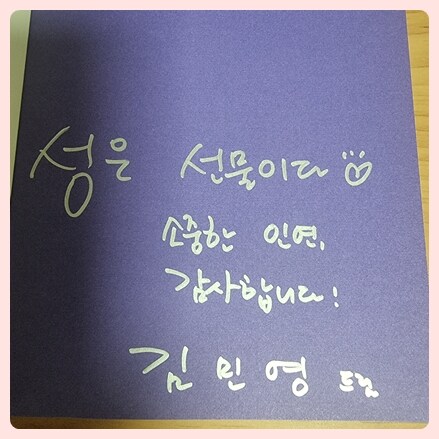 성은 선물이다
소중한 인연,
감사합니다!
김민영 드림